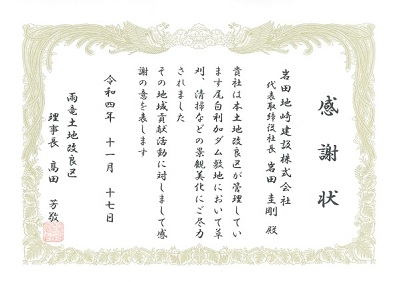 感謝状
岩田地崎建設株式会社
代表取締役社長 岩田 圭剛 殿
貴社は本土地改良区が管理してい
ます尾白利加ダム敷地において草
刈、清掃などの景観美化にご尽力
されました
その地域貢献活動に対しまして感
謝の意を表します
令和四年 十一月 十七日
雨竜土地改良区
理事長 高田 芳敬